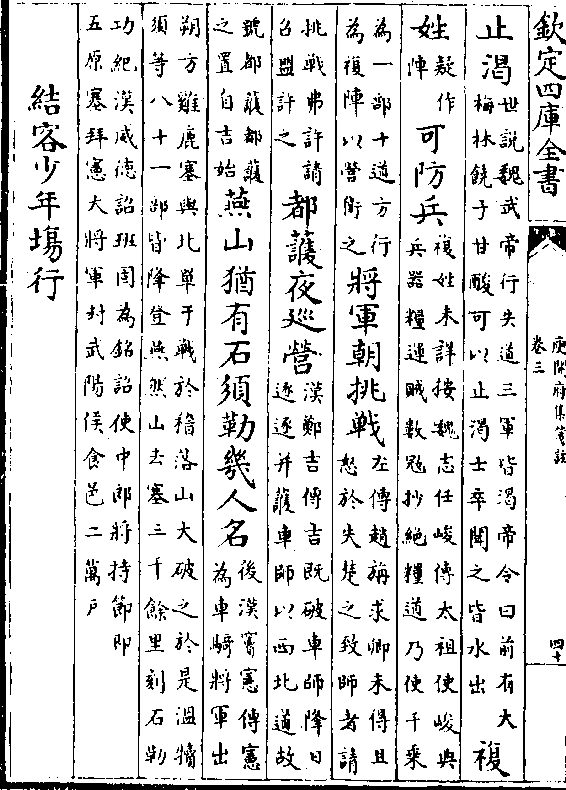 欽定四庫全書
庾開府集箋註
卷三
四十
止渴
世說魏武帝行失道三軍皆渴帝令曰前有大
梅林饒子甘酸可以止渴士卒聞之皆水出
複
姓
疑作
陣
可防兵
複姓未詳按魏志任峻傳太祖使峻與
兵器糧運賊數冦抄絕糧道乃使千乘
為一部十道方行
為複陣以營衛之
將軍朝挑戰
左傳趙旃求卿未得且
怒於失楚之致師者請
挑戰弗許請
召盟許之
都䕶夜廵營
漢鄭吉傳吉既破車師降日
逐逐并䕶車師以西北道故
號都䕶都䕶
之置自吉始
燕山猶有石須勒幾人名
後漢竇憲傳憲
為車騎將軍出
朔方雞鹿塞與北單于戰於稽落山大破之於是溫犢
須等八十一部皆降登燕然山去塞三千餘里刻石勒
功紀漢威德詔班固為銘詔使中郎將持節即
五原塞拜憲大將軍封武陽侯食邑二萬戶
結客少年塲行